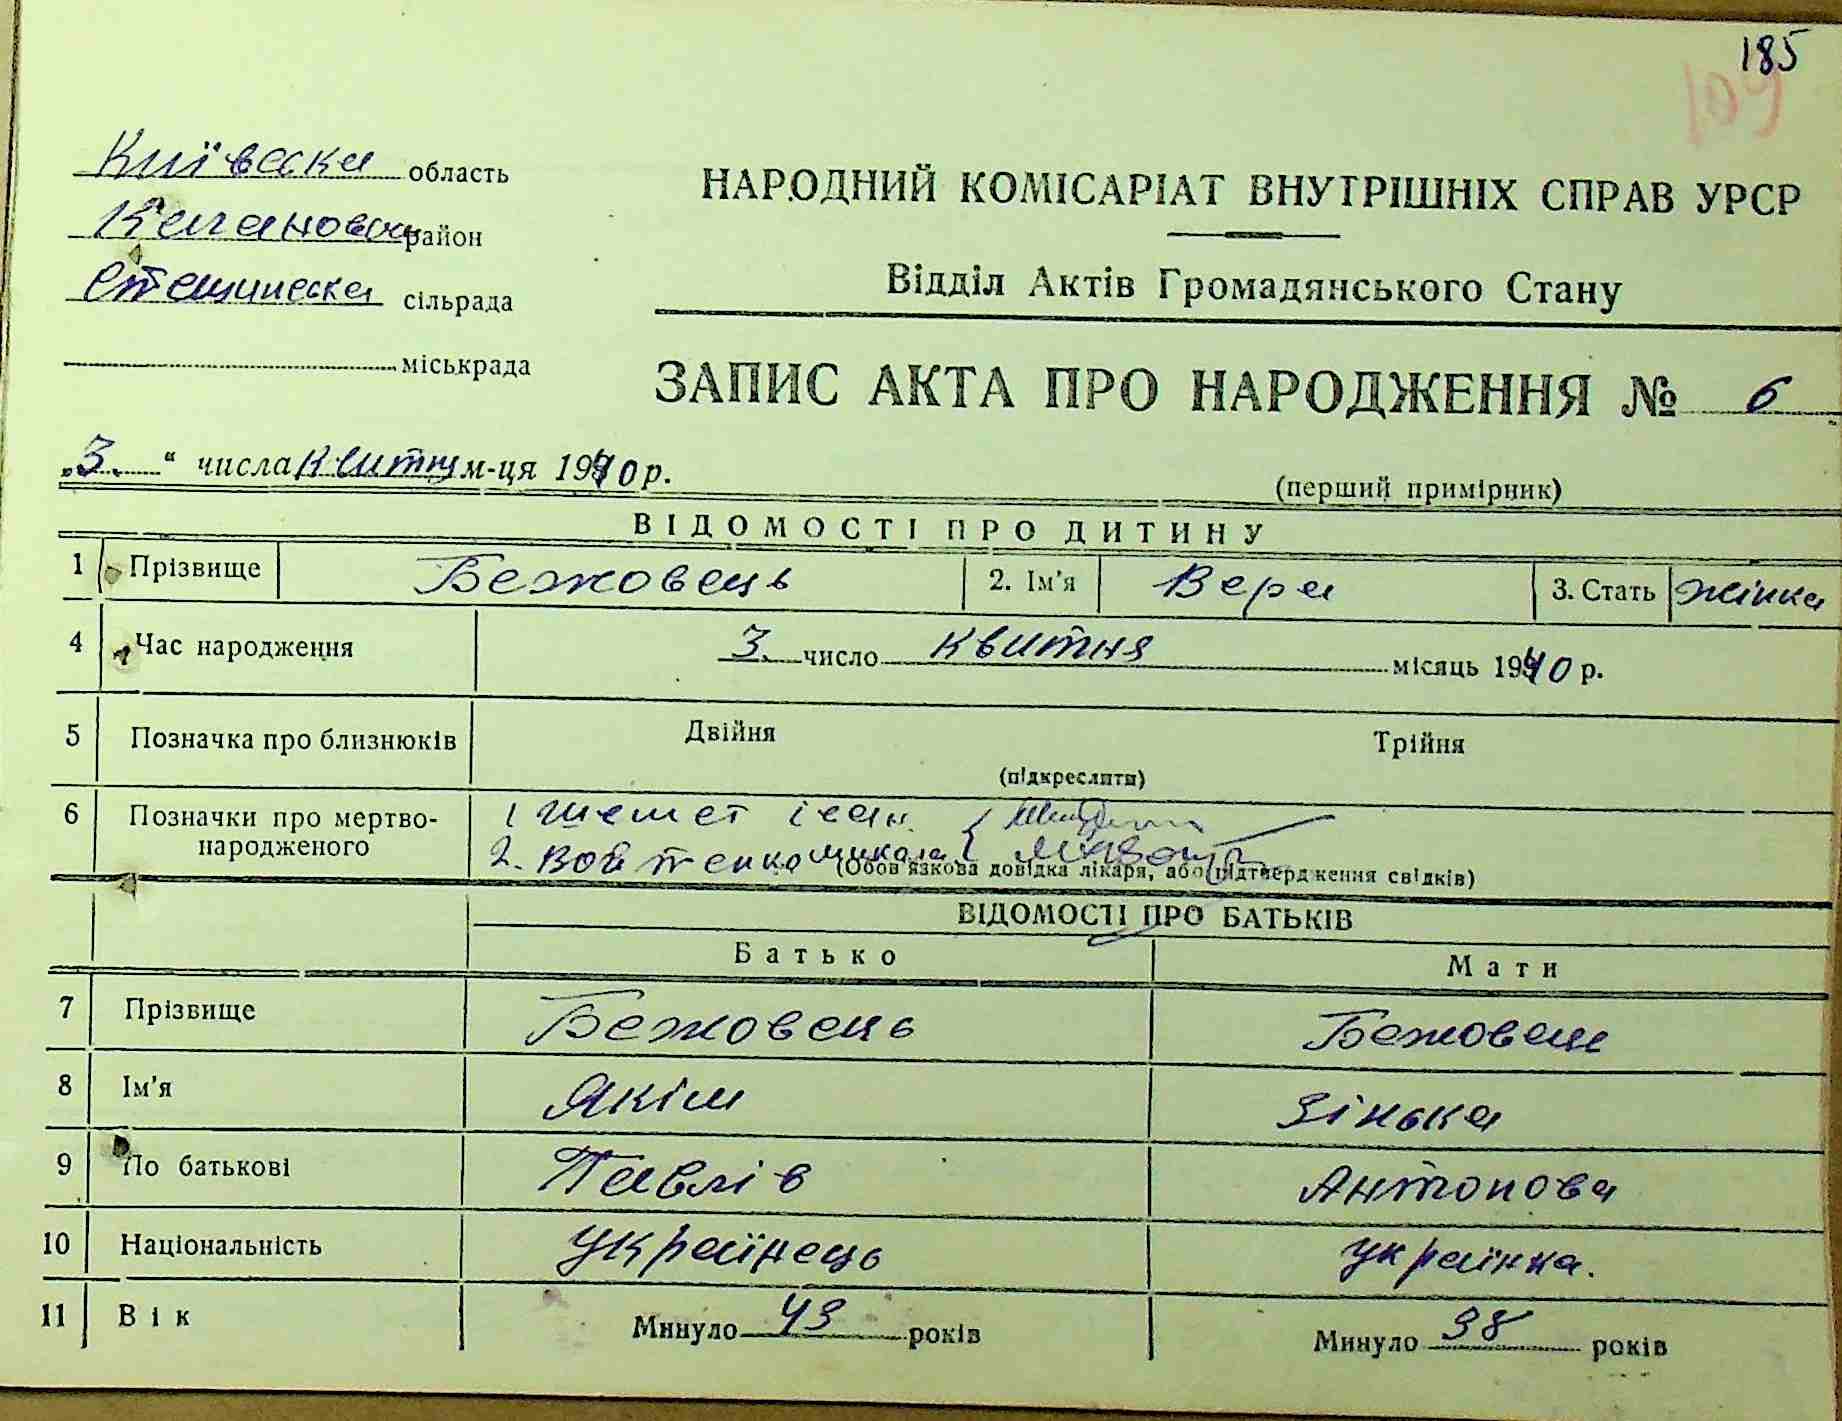 185
109
Київська область
Кагановськ район
Стещинська сільрада
міськрада
НАРОДНИЙ КОМІСАРІАТ ВНУТРІШНІХ СПРАВ УРСР
Відділ Актів Громадянського Стану
ЗАПИС АКТА ПРО НАРОДЖЕННЯ № 6
„3." числа квитня м-ця 1940 р.
(перший примірник)
ВІДОМОСТІ ПРО ДИТИНУ
1 Прізвище Бежовець 2. Ім'я Вера 3. Стать жінка
4 Час народження 3. число квитня місяць 1940 р.
5 Позначка про близнюків Двійня Трійня
(підкреслити)
6 Позначки про мертво-
народженого
1 Шемет Іван
2. Войтенко Микола
(Обов'язкова довідка лікаря, або підтвердження свідків)
ВІДОМОСТІ ПРО БАТЬКІВ
Батько Мати
7 Прізвище Бежовець Бежовець
8 Ім'я Якім Зінька
9 По батькові Павлів Антонова
10 Національність українець українка.
11 Вік Минуло 43 років Минуло 38 років